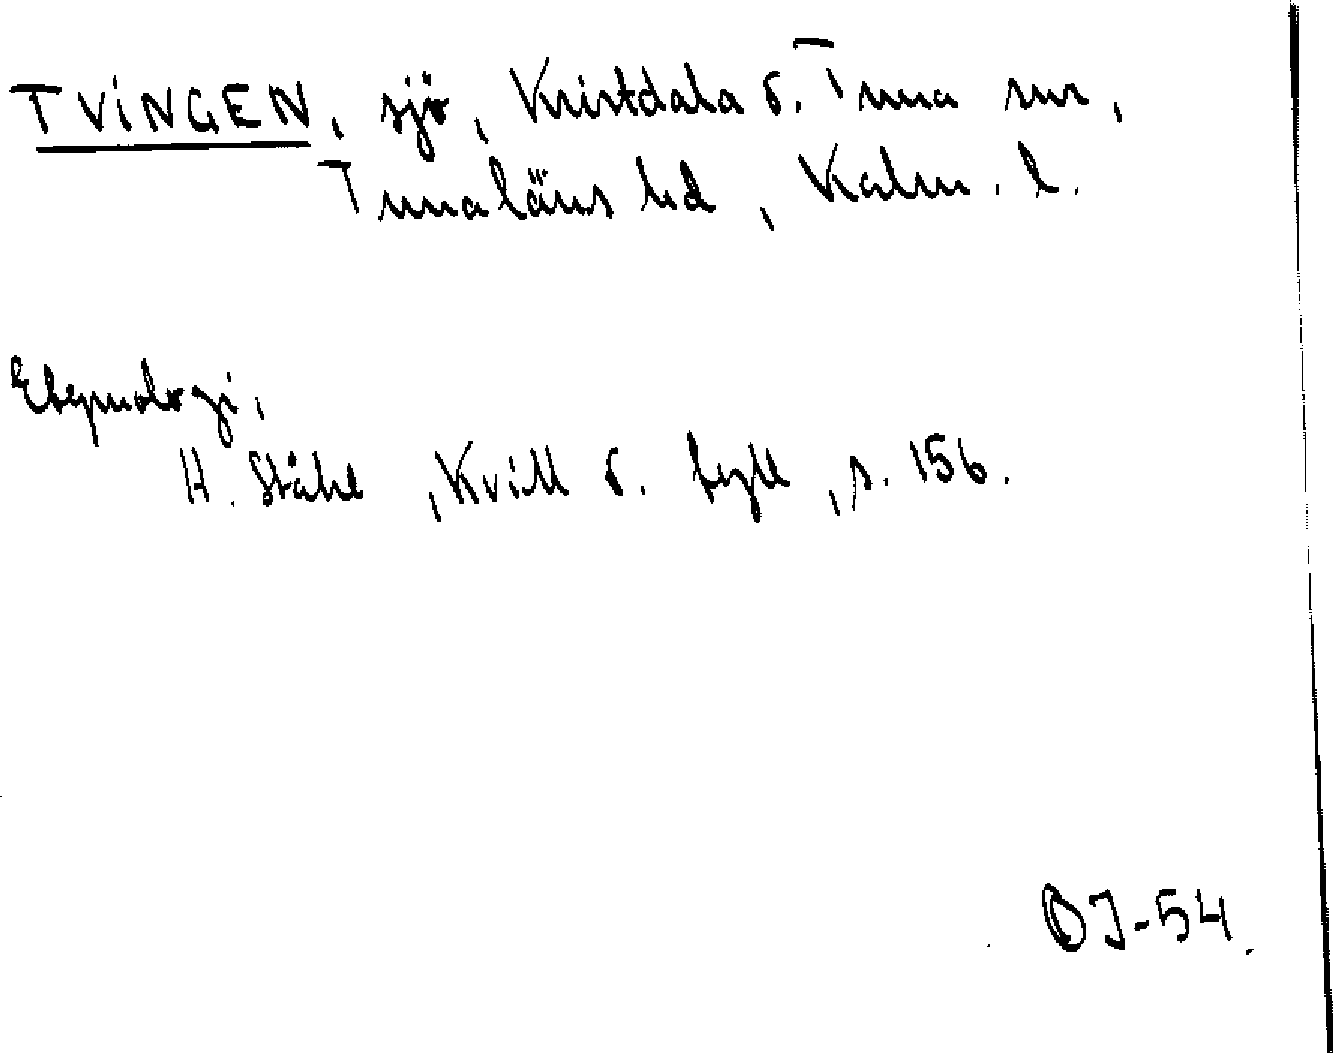 TVINGEN, sjö, Kristdala o. Tuna snr,
Tunaläns hd, Kalm. l.
Etymologi,
H. Ståhl, Kvill o. tyll, s. 156.
OJ-54.